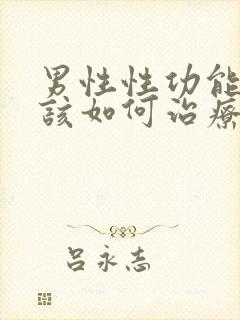 男性性功能
該如何治療
呂永志